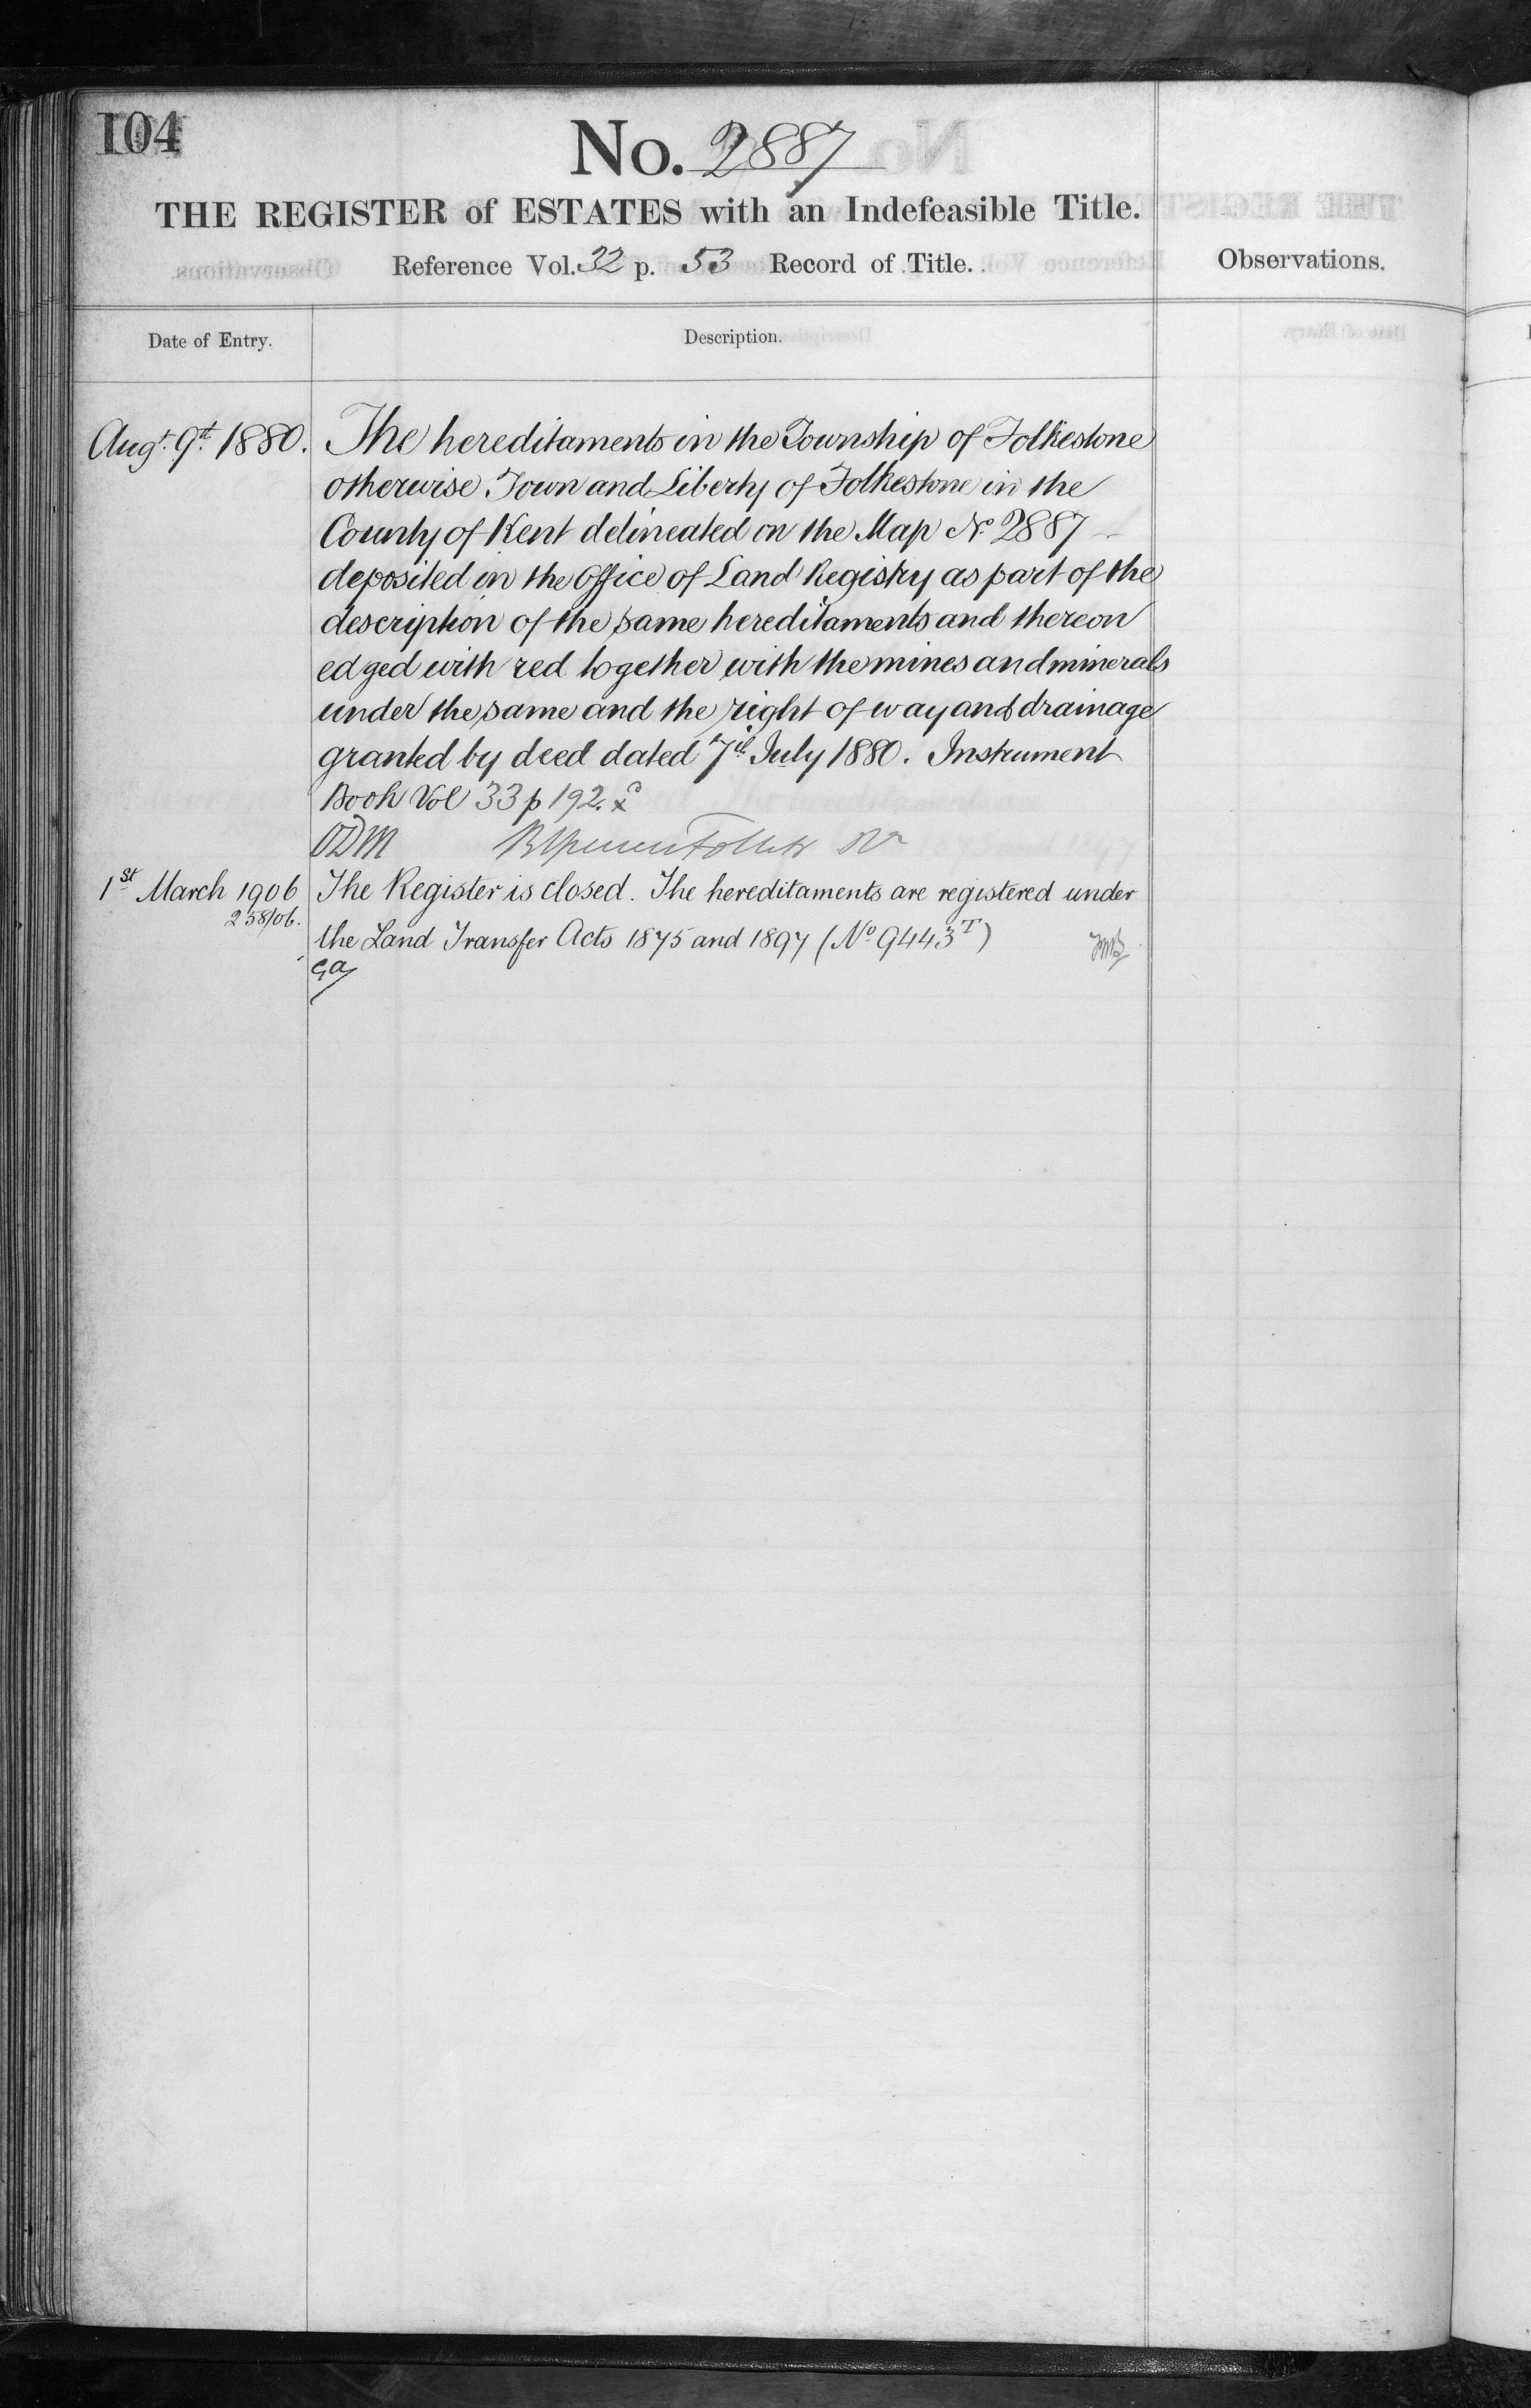 104
No. 2887
THE REGISTER of ESTATES with an Indefeasible Title.
Reference Vol. 32 p. 53 Record of Title.
Observations.
Date of Entry.
Description.
Augt. 9th. 1880.
The hereditaments in the Township of Folkestone
otherwise Town and Liberty of Folkestone in the
County of Kent delineated on the Map No. 2887
deposited in the Office of Land Registry as part of the
description of the same hereditaments and thereon
edged with red together with the mines and minerals
under the same and the right of way and drainage
granted by deed dated 7th July 1880. Instrument
Book Vol 33 p 192.
ODM
1st March 1906
258/06.
The Register is closed. The hereditaments are registered under
the Land Transfer Acts 1875 and 1897 (No 9443T)